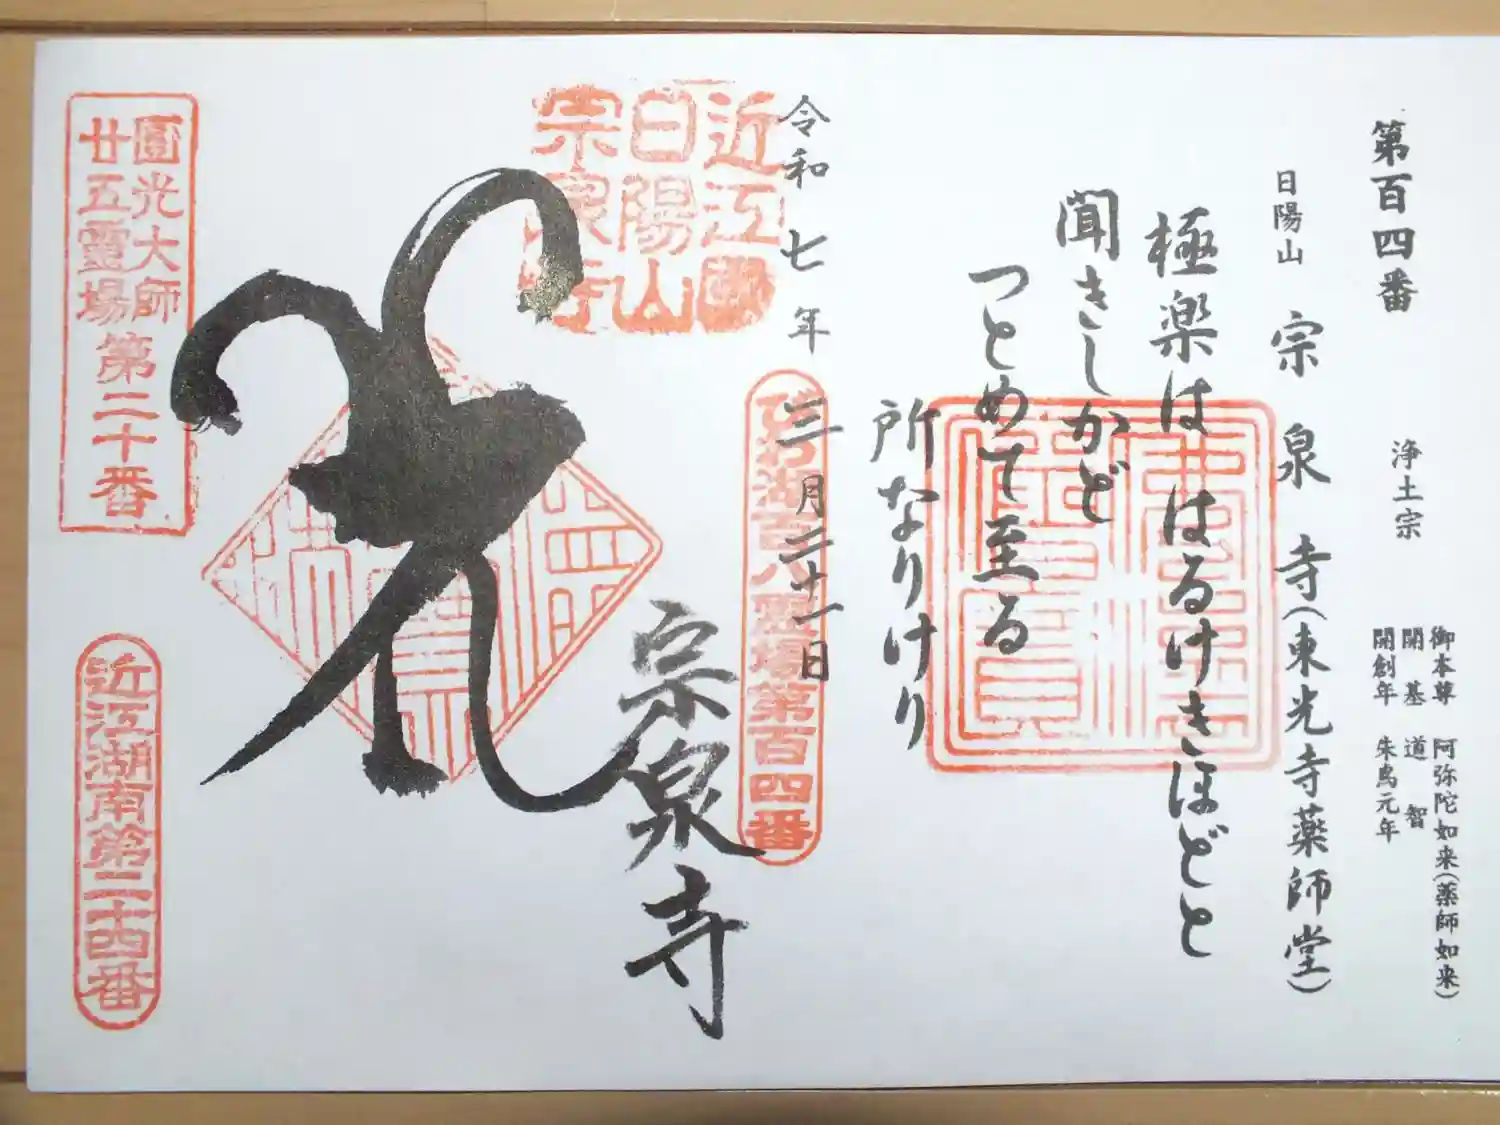 第百四番
浄土宗
御本尊 阿弥陀如来(薬師如来)
開基 道智
開創年 朱鳥元年
日陽山 宗泉寺(東光寺薬師堂)
極楽ははるけきほどと
聞きしかど
つとめて至る
所なりけり
令和七年三月二十一日
びわ湖百八霊場第百四番
近江國
日陽山
宗泉寺
宗泉寺
圓光大師
廿五霊場
第二十番
近江湖南第二十四番